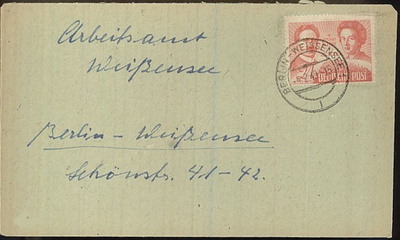 Arbeitsamt
Weißensee
Berlin – Weißensee
Schönstr. 41-42.
BERLIN-WEISSENSEE
1
POST